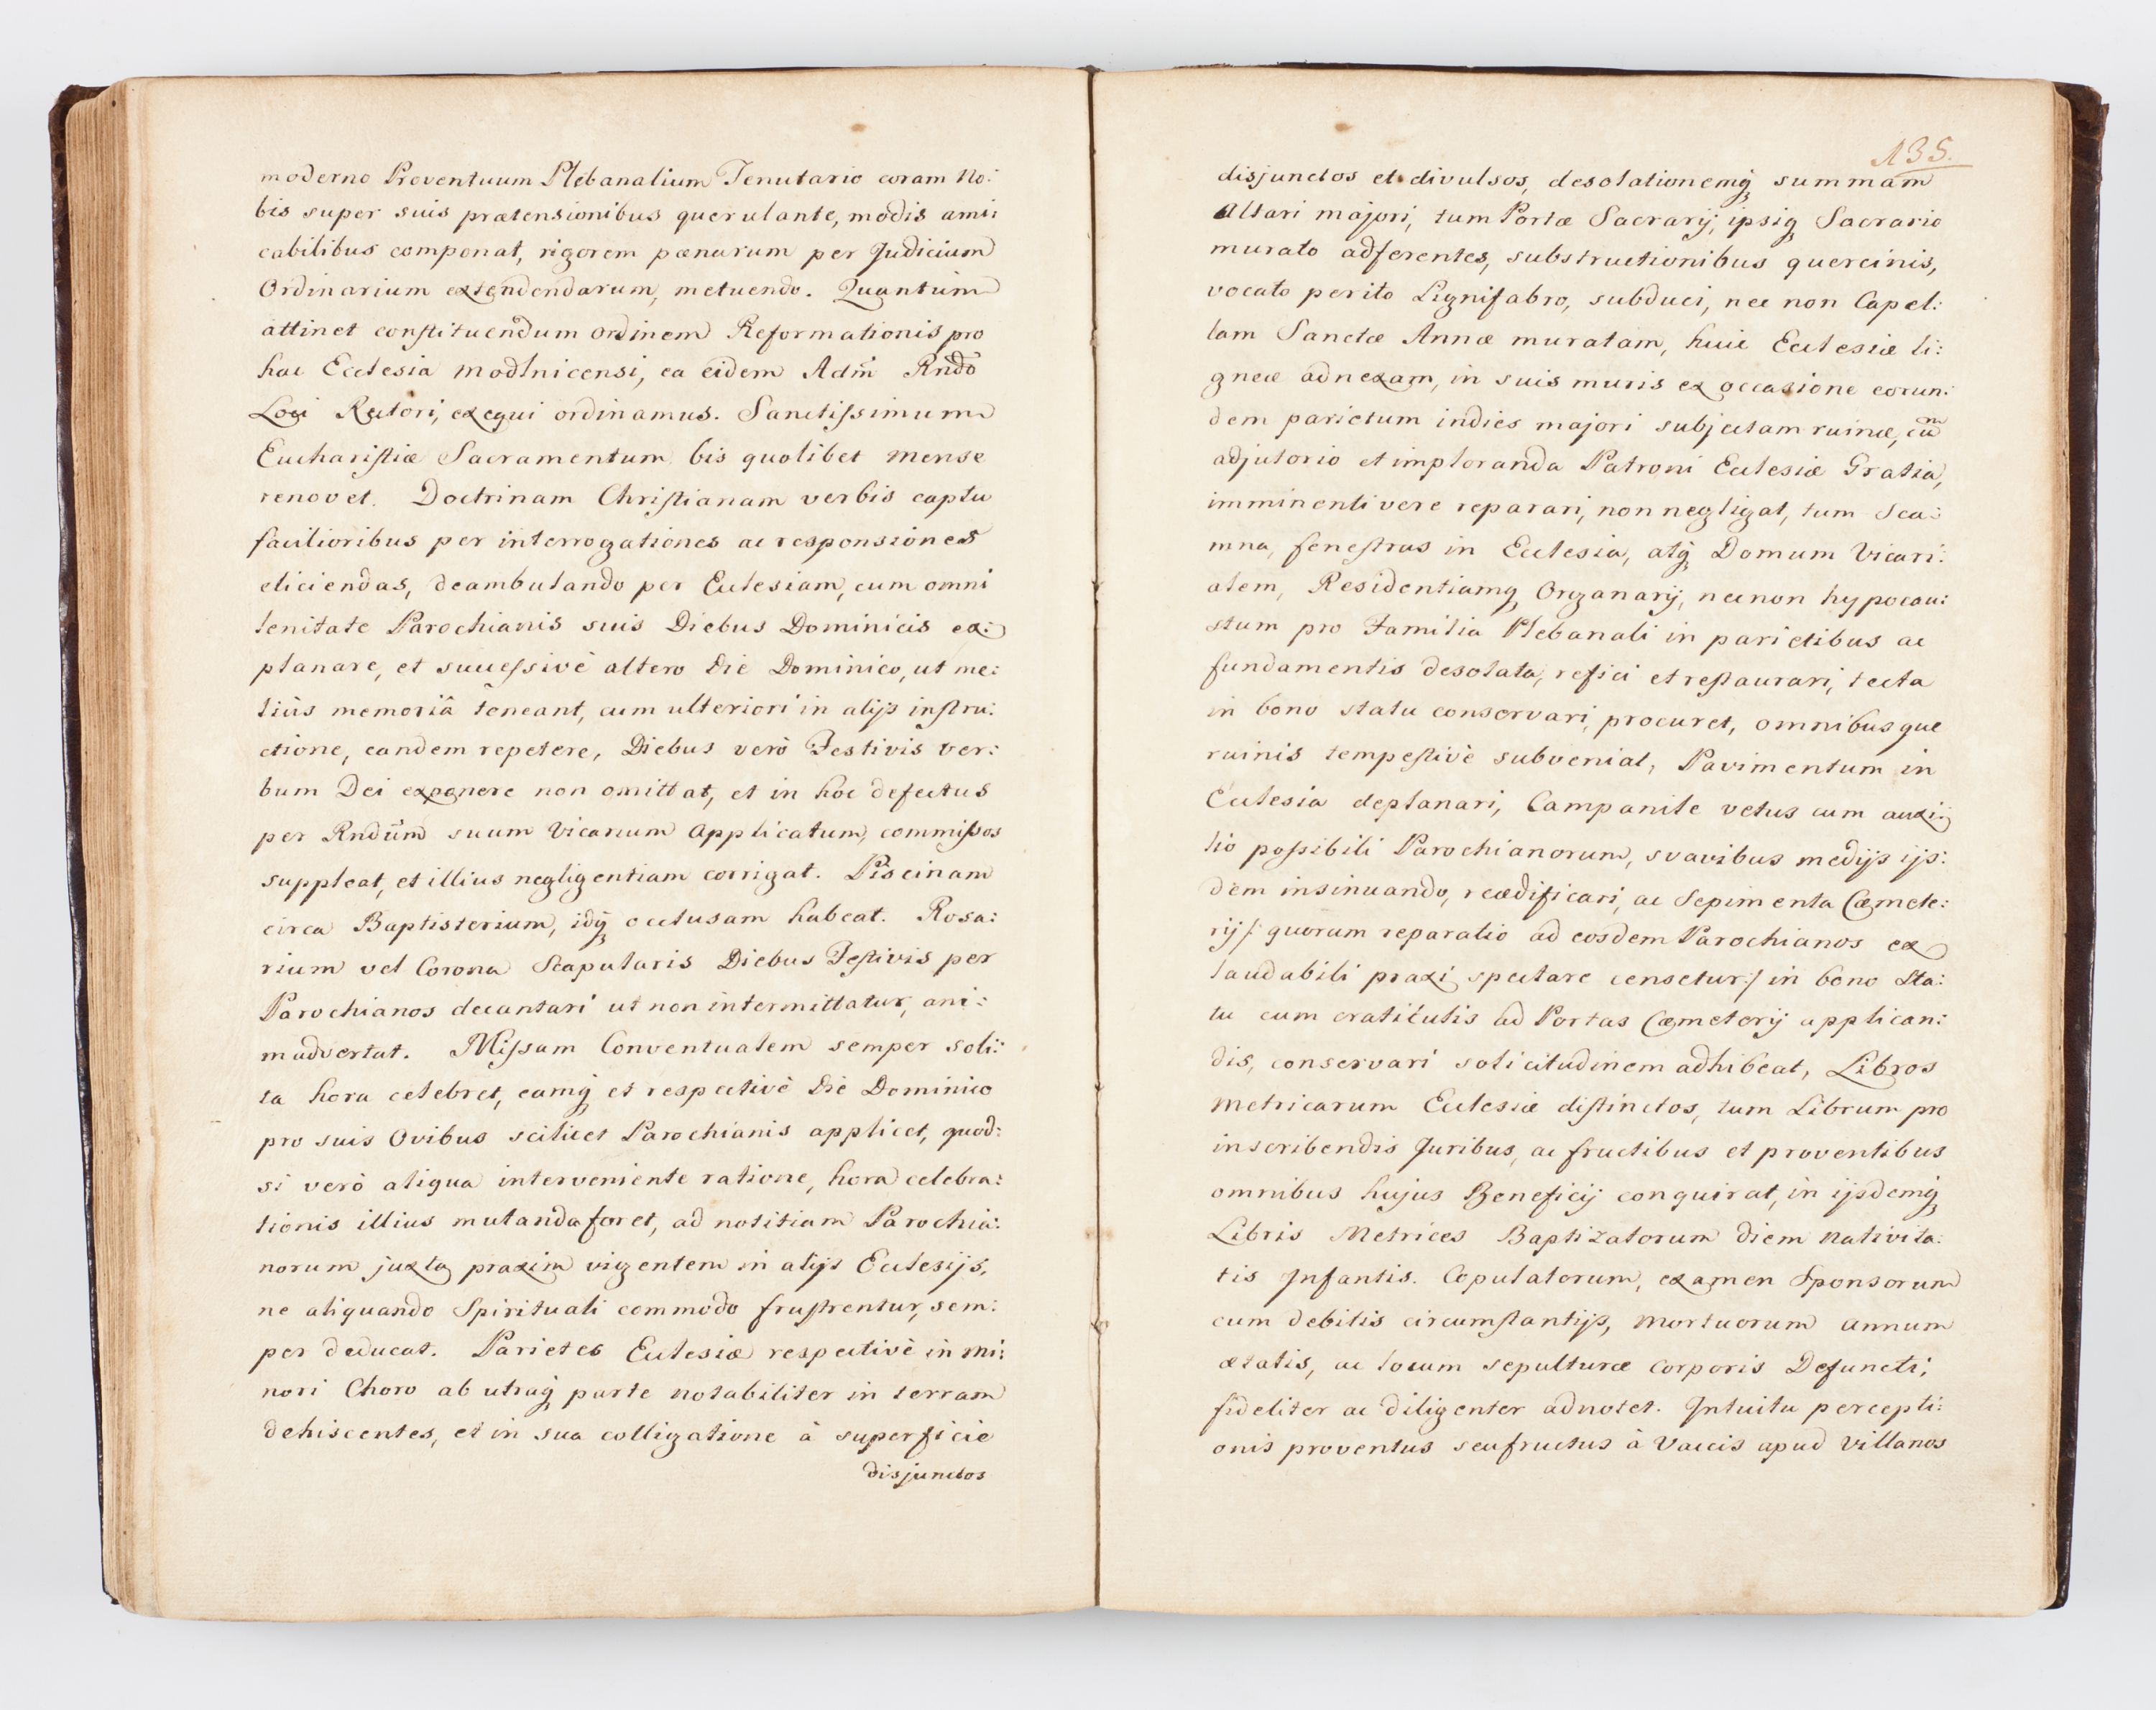 moderno Proventuum Plebanalium Tenutario coram No:
bis super suis prætensionibus querulante, modis ami:
cabilibus componat, rigorem pænarum per Judicium
Ordinarium extendendarum, metuendo. Quantum
attinet constituendum ordinem Reformationis pro
hac Ecclesia Modlnicensi, ea eidem Adm̃ Rnd̃o
Loci Rectori, exequi ordinamus. Sanctissimum
Eucharistiæ Sacramentum bis quolibet mense
renovet. Doctrinam Christianam verbis captu
facilioribus per interrogationes ac responsiones
eliciendas, deambulando per Ecclesiam, cum omni
lenitate Parochianis suis Diebus Dominicis ex:
planare, et successivè altero Die Dominico, ut me:
liùs memoriâ teneant, cum ulteriori in alijs instru:
ctione, eandem repetere, Diebus verò Festivis Ver:
bum Dei exponere non omittat, et in hoc defectus
per Rndũm suum Vicarium applicatum, commissos
suppleat, et illius negligentiam corrigat. Piscinam
circa Baptisterium, idq̃ occlusam habeat. Rosa:
rium vel Corona Scapularis Diebus Festivis per
Parochianos decantari ut non intermittatur, ani:
madvertat. Missam Conventualem semper soli:
ta hora celebret, eamq̃ et respectivè Die Dominico
pro suis Ovibus scilicet Parochianis applicet, quod:
si verò aliqua interveniente ratione, hora celebra:
tionis illius mutanda foret, ad notitiam Parochia:
norum juxta praxim vigentem in alijs Ecclesijs,
ne aliquando Spirituali commodo frustrentur, sem:
per deducat. Parietes Ecclesiæ respectivè in mi:
nori Choro ab utraq̃ parte notabiliter in terram
dehiscentes, et in sua colligatione à superficie
disjunctos
135.
disjunctos et divulsos, desolationemq̃ summam
Altari majori, tum Portæ Sacrarij, ipsiq̃ Sacrario
murato adferentes, substructionibus quercinis,
vocato perito Lignifabro, subduci, nec non Capel:
lam Sanctæ Annæ muratam, huic Ecclesiæ li:
gneæ adnexam, in suis muris ex occasione eorun:
dem parietum indies majori subjectam ruinæ, cũm
adjutorio et imploranda Patroni Ecclesiæ Gratia,
imminenti vere reparari, non negligat, tum Sca:
mna, fenestras in Ecclesia, atq̃ Domum Vicari:
alem, Residentiamq̃ Organarij, necnon hypocau:
stum pro Familia Plebanali in parietibus ac
fundamentis desolata, refici et restaurari, tecta
in bono statu conservari, procuret, omnibusque
ruinis tempestivè subveniat, Pavimentum in
Ecclesia deplanari, Campanile vetus cum auxi:
lio possibili Parochianorum, suavibus medijs ijs:
dem insinuando, reædificari, ac Sepimenta Cæmete:
rij /: quorum reparatio ad eosdem Parochianos ex
laudabili praxi spectare censetur :/ in bono Sta:
tu cum craticulis ad Portas Cæmeterij applican:
dis, conservari solicitudinem adhibeat, Libros
Metricarum Ecclesiæ distinctos, tum Librum pro
inscribendis Juribus, ac fructibus et proventibus
omnibus hujus Beneficij conquirat, in ijsdemq̃
Libris Metrices Baptizatorum diem Nativita:
tis Infantis. Copulatorum, examen Sponsorum
cum debitis circumstantijs, Mortuorum annum
ætatis, ac locum sepulturæ Corporis Defuncti,
fideliter ac diligenter adnotet. Intuitu percepti:
onis proventus seu fructus à Vaccis apud Villanos